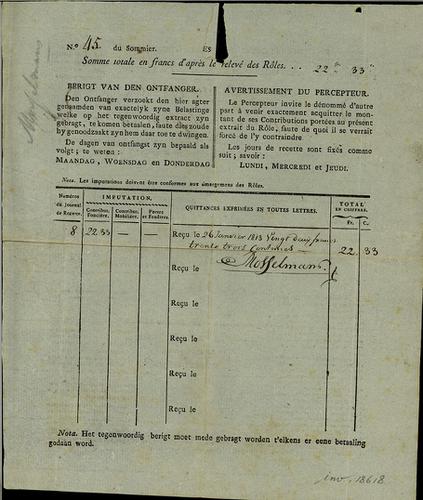 N.º 45. du Sommier. ES
Somme totale en francs d'après le relevé des Rôles. . . 22 fr 33 c
BERIGT VAN DEN ONTFANGER.
Den Ontfanger verzoekt den hier agter
genaamden van exactelyk zyne Belastinge
welke op het tegenwoordig extract zyn
gebragt, te komen betalen, faute dies zoude
hy genoodzaekt zyn hem daar toe te dwingen.
De dagen van ontfangst zyn bepaald als
volgt; te weten:
MAANDAG, WOENSDAG en DONDERDAG
AVERTISSEMENT DU PERCEPTEUR.
Le Percepteur invite le dénommé d'autre
part à venir exactement acquitter le mon-
tant de ses Contributions portées au présent
extrait du Rôle, faute de quoi il se verrait
forcé de l'y contraindre.
Les jours de recette sont fixés comme
suit; savoir:
LUNDI, MERCREDI et JEUDI.
Nota. Les imputations doivent être conformes aux émargemens des Rôles.
Numéros
du Journal
de Recette.
IMPUTATION.
Contribut.
Foncière.
Contribut.
Mobilière.
Portes
et Fenêtres.
QUITTANCES EXPRIMÉES EN TOUTES LETTRES.
TOTAL
EN CHIFFRES.
Fr. C.
8 22.33 — Reçu le 26 Janvier 1813 Vingt deux francs
trente trois Centimes 22 33
Reçu le Mosselmans
Reçu le
Reçu le
Reçu le
Reçu le
Nota. Het tegenwoordig berigt moet mede gebragt worden t'elkens er eene betaling
gedaan word.
inv. 18618
Mosselmans